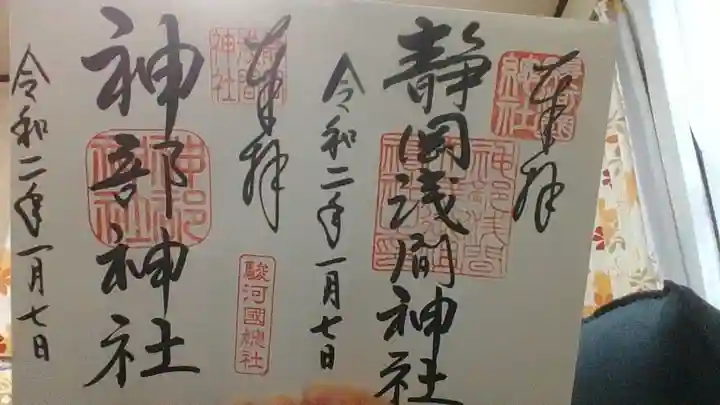 奉拝
静岡浅間神社
令和二年一月七日
奉拝
神部神社
駿河國總社
令和二年一月七日